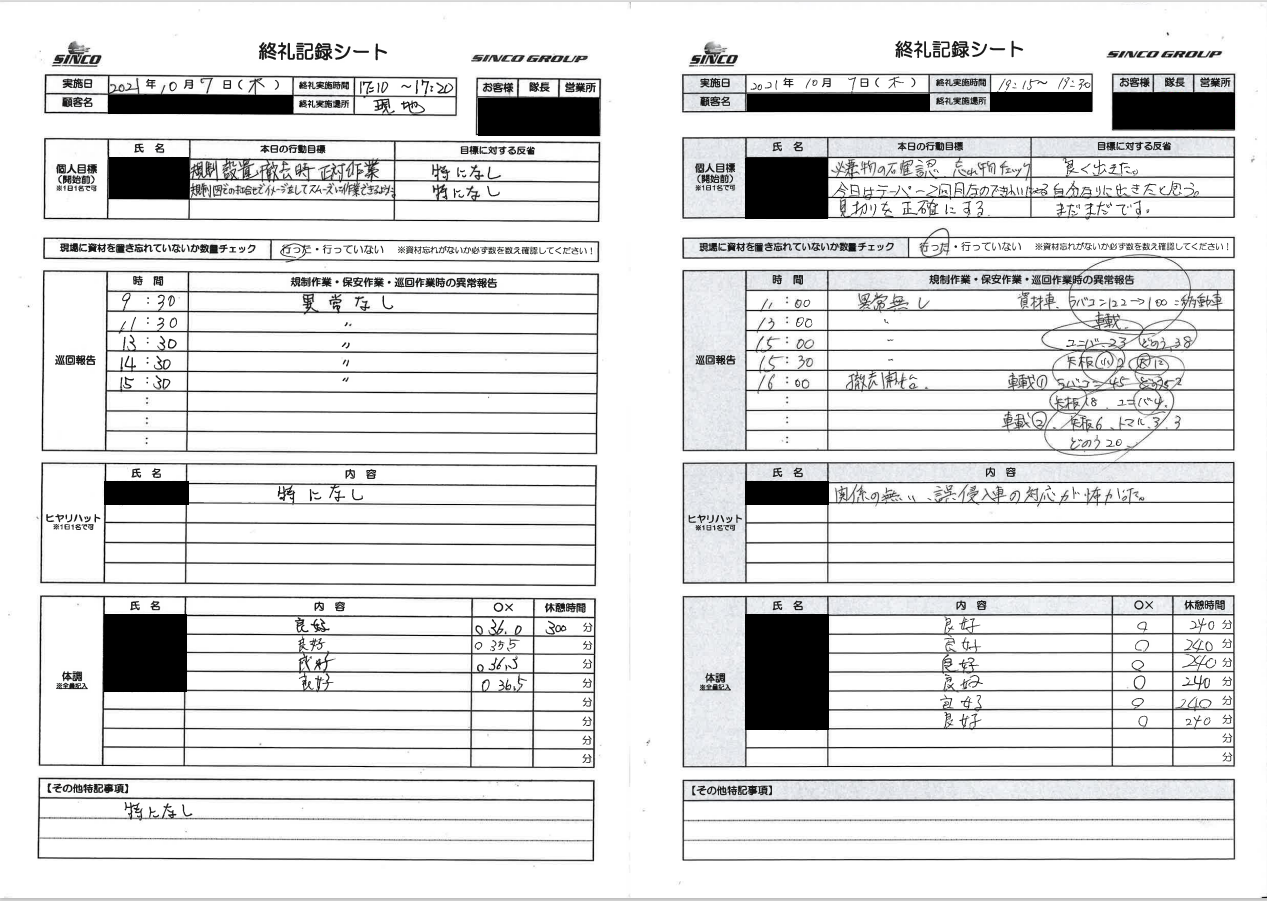 SINCO
終礼記録シート
SINCO GROUP
実施日 2021年10月7日(木) 終礼実施時間 17:10 ~17:20
顧客名 終礼実施場所 現地
お客様 隊長 営業所
個人目標
(開始前)
※1日1名で可
氏名 本日の行動目標 目標に対する反省
規制設置・撤去時 正対作業 特になし
特になし
現場に資材を置き忘れていないか数量チェック 行った・行っていない ※資材忘れがないか必ず数を数え確認してください!
巡回報告
時間 規制作業・保安作業・巡回作業時の異常報告
9:30 異常なし
11:30 〃
13:30 〃
14:30 〃
15:30 〃
:
:
:
ヒヤリハット
※1日1名で可
氏名 内容
特になし
体調
※全員記入
氏名 内容 ○× 休憩時間
良好 ○ 36.0 300分
良好 ○ 35.5 分
良好 ○ 36.5 分
良好 ○ 36.5 分
分
分
分
分
【その他特記事項】
特になし
SINCO
終礼記録シート
SINCO GROUP
実施日 2021年10月7日(木) 終礼実施時間 19:15~19:30
顧客名 終礼実施場所
お客様 隊長 営業所
個人目標
(開始前)
※1日1名で可
氏名 本日の行動目標 目標に対する反省
忘れ物チェック 良く出きた。
今日はテーパー 自分なりに出きたと思う。
見切りを正確にする まだまだです。
現場に資材を置き忘れていないか数量チェック 行った・行っていない ※資材忘れがないか必ず数を数え確認してください!
巡回報告
時間 規制作業・保安作業・巡回作業時の異常報告
11:00 異常無し 資材車、ラバコン122→100
13:00 〃 車載
15:00 〃 ユニバ 23 どのう 38
15:30 矢板
16:00 撤去開始。 車載① ラバコン 45
: 矢板18 ユニバ4.
: 車載②、矢板6、トマル 3、3
: どのう20
ヒヤリハット
※1日1名で可
氏名 内容
関係の無い、誤侵入車の対応が怖かった。
体調
※全員記入
氏名 内容 ○× 休憩時間
良好 ○ 240分
良好 ○ 240分
良好 ○ 240分
良好 ○ 240分
良好 ○ 240分
良好 ○ 240分
分
分
【その他特記事項】